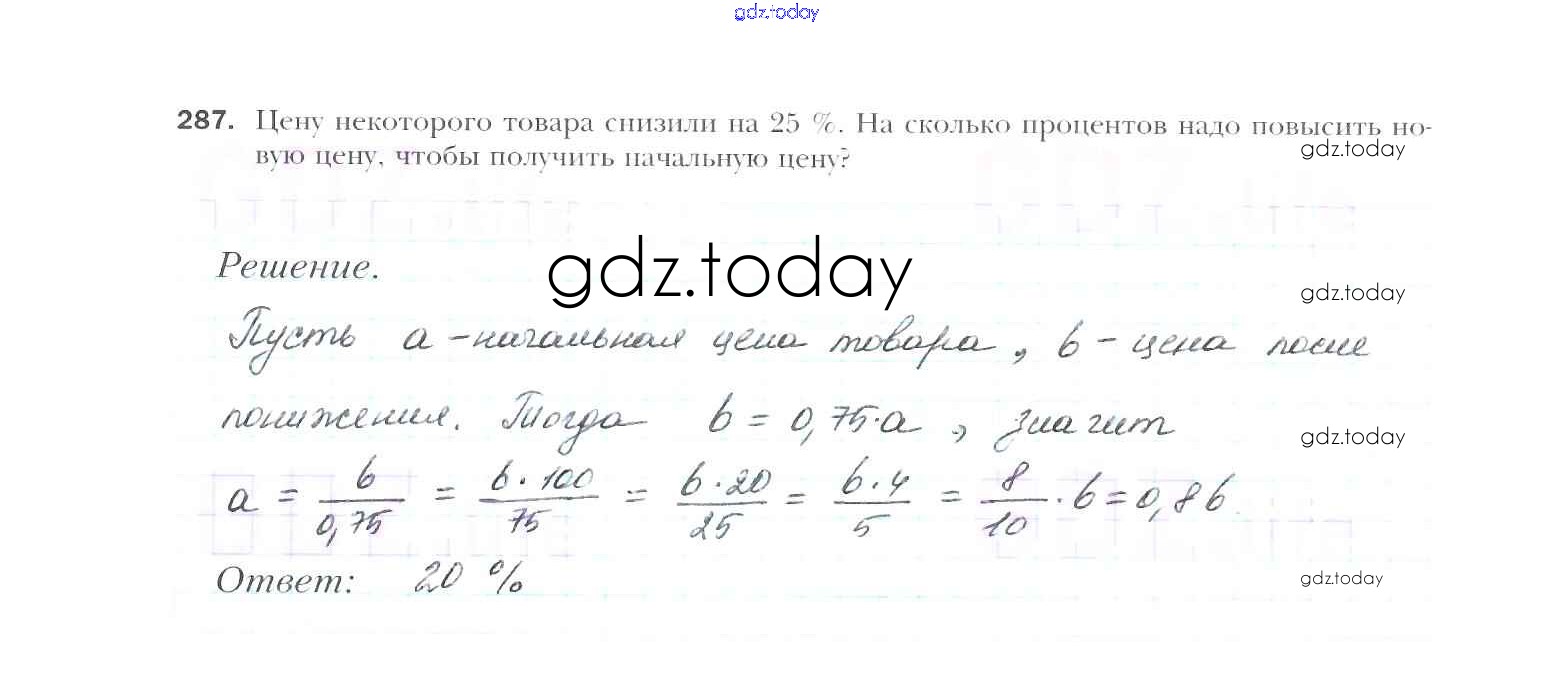 gdz.today
287. Цену некоторого товара снизили на 25 %. На сколько процентов надо повысить но-
вую цену, чтобы получить начальную цену?
gdz.today
Решение.
gdz.today
gdz.today
Пусть а - начальная цена товара, b - цена после
понижения. Тогда b = 0,75·a, значит
gdz.today
a = b/0,75 = b·100/75 = b·20/25 = b·4/5 = 8/10·b = 0,8b
Ответ: 20 %
gdz.today